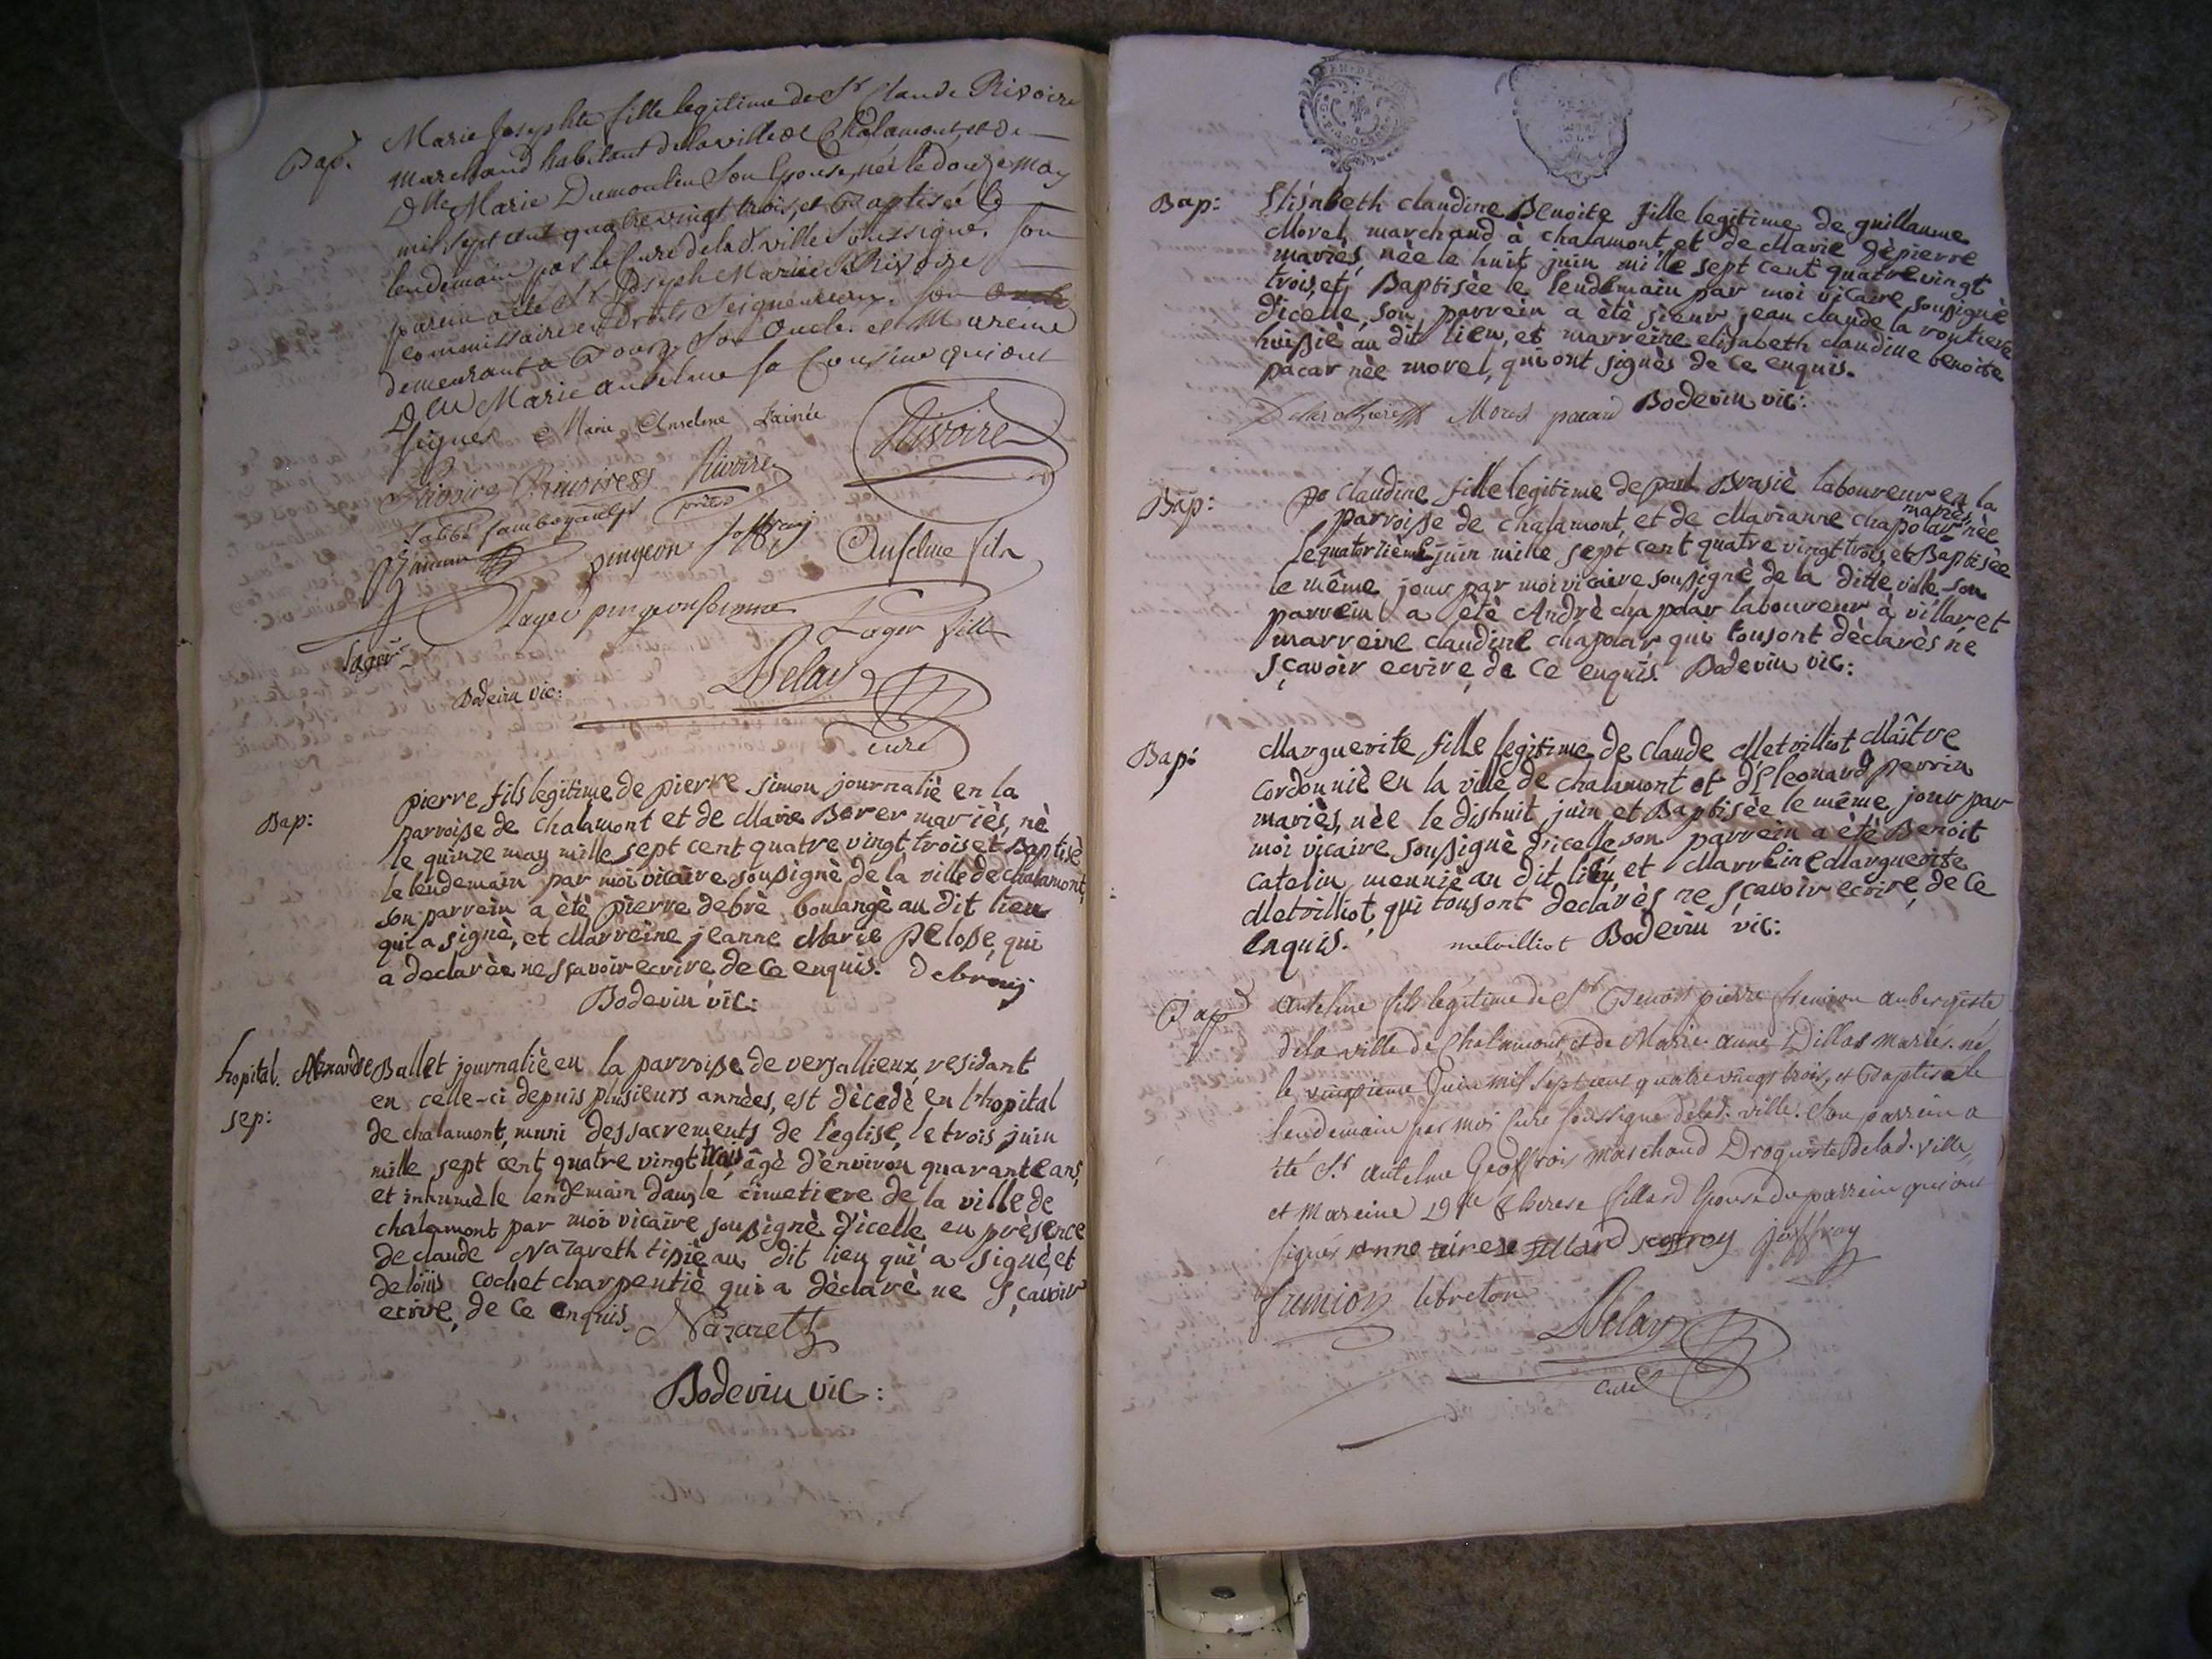 Bap. Marie Josephte fille legitime de Sr Claude Rivoire
marchand habitant de la ville de Chalamont, et de
Dlle Marie Dumoulin son Epouse, née le douze may
mil sept cent quatre vingt trois, et Baptisée le
lendemain par le Curé de la d. ville soussigné. son
parein a été Sr Joseph Marie Rivoire
commissaire en Droits Seigneuriaux, son
demeurant a Bourg, son Oncle. et Mareine
Dlle Marie anselme sa Cousine qui ont
signés Marie Anselme Lainée Rivoire
Rivoire Rivoire
pingeon joffray Anselme fils
Lager fille
Lager
Bodevin vic: Delay
curé
Bap: pierre fils legitime de pierre simon journaliè en la
parroisse de chalamont et de Marie Borer mariès, nè
le quinze may mille sept cent quatre vingt trois et Baptisè
le lendemain par moi vicaire soussignè de la ville de chalamont,
son parrein a ètè pierre debrè boulangè au dit lieu
qui a signè, et Marreine jeanne Marie pelosse, qui
a declarèe ne sçavoir ecrire de ce enquis.
Bodevin vic:
hopital. Alexandre Ballet journaliè en la parroisse de versallieux, residant
en celle-ci depuis plusieurs annèes, est dècedè en l'hopital
sep: de chalamont, muni des sacrements de l'eglise, le trois juin
mille sept cent quatre vingt trois âgè d'environ quarante ans,
et inhumè le lendemain dans le cimetiere de la ville de
chalamont par moi vicaire soussignè d'icelle en prèsence
de claude Nazareth tissiè au dit lieu qui a signè, et
de loüis cochet charpentiè qui a dèclarè ne sçavoir
ecrire, de ce enquis. Nazareth
Bodevin vic:
Bap: Elisabeth claudine Benoite fille legitime de guillaume
Morel marchand à chalamont, et de Marie dèpierre
mariès, nèe le huit juin mille sept cent quatre vingt
trois et Baptisèe le lendemain par moi vicaire soussignè
d'icelle, son parrein a ètè sieur jean claude la routiere
huissiè au dit lieu, et marreine elisabeth claudine benoite
pacar nèe morel, qui ont signès de ce enquis.
Morel Bodevin vic:
Bap: claudine fille legitime de paul Brasiè laboureur en la
parroisse de chalamont, et de Marianne chapolar mariès nèe
le quatorzième juin mille sept cent quatre vingt trois, et Baptisèe
le même jour par moi vicaire soussignè de la ditte ville son
parrein a ètè Andrè chapolar laboureur à villar et
marreine claudine chapolar qui tous ont dèclarès ne
sçavoir ecrire de ce enquis. Bodevin vic:
Bap: Marguerite fille legitime de claude Metrilliot Maître
cordonniè en la ville de chalamont et d'Eleonard perrin
mariès, nèe le dishuit juin et Baptisèe le même jour par
moi vicaire soussignè d'icelle son parrein a ètè Benoit
catelin meuniè au dit lieu, et Marreine Marguerite
Metrilliot, qui tous ont declarès ne sçavoir ecrire, de ce
enquis. metrilliot Bodevin vic:
Bap anselme fils légitime de Sr Benoit pierre fremion aubergiste
de la ville de Chalamont et de Marie anne Dillas mariés. né
le vingtieme Juin mil sept cent quatre vingt trois, et Baptisé le
lendemain par moi Curé soussigné de la d. ville. son parrein a
été Sr. antelme Geoffroi marchand Droguiste de la d. ville,
et Mareine Dlle Therese fillard Epouse du parrein qui ont
signés anne térese fillard joffray
fremion lebreton Delay
curé